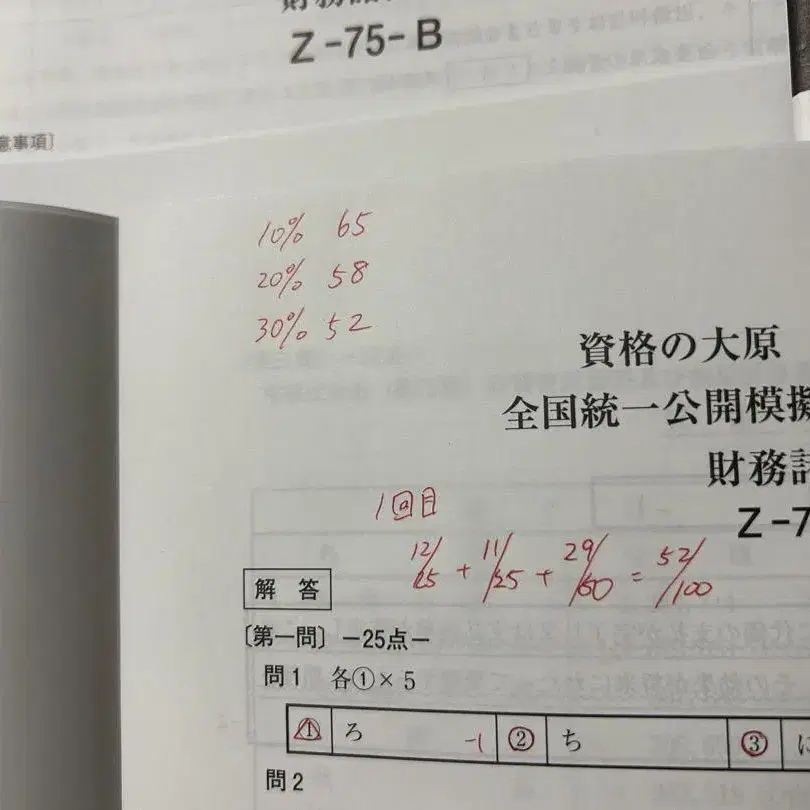 Z-75-B
意事項〕
10% 65
20% 58
30% 52
資格の大原
全国統一公開模擬
財務諸
Z-7
1回目
12/25 + 11/25 + 29/50 = 52/100
解 答
〔第一問〕 -25点-
問1 各①×5
① ろ -1 ② ち ③ に
問2